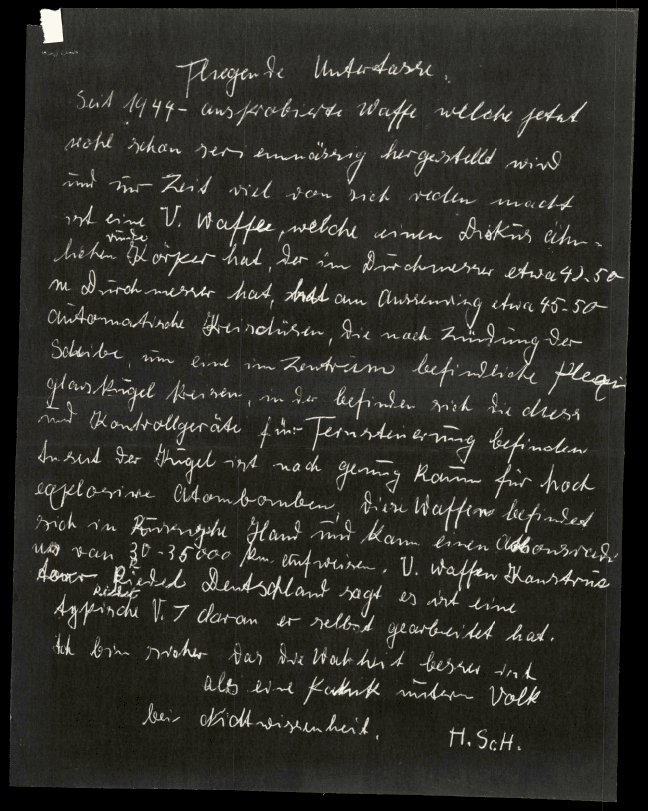 Fliegende Untertasse.
Seit 1944- ausprobierte Waffe welche jetzt
wohl schon serienmässig hergestellt wird
und zur Zeit viel von sich reden macht
ist eine V. Waffe, welche einen Diskus ähn-
runde
lichen Körper hat, der im Durchmesser etwa 42-50
m Durchmesser hat, am Aussenring etwa 45-50
automatische Kreisdüsen, die nach Zündung der
Scheibe, um eine im Zentrum befindliche Plexi
glaskugel kreisen, in der befinden sich die
und Kontrollgeräte für Fernsteuerung befinden
der Kugel ist noch genug Raum für hoch
explosive Atombomben, diese Waffen befindet
sich in Hand und kann einen
von 30-35000 km aufweisen. V. Waffen Konstruk
Riedel
Riedel Deutschland sagt es ist eine
typische V. 7 daran er selbst gearbeitet hat.
Ich bin sicher das die Wahrheit besser ist
als eine unterm Volk
bei Nichtwissenheit.
H. ScH.